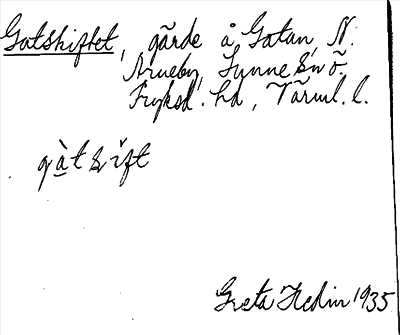 Gatskiftet, gärde å Gatan, N.
Arneby, Sunne sn ö.
Fryksd. hd, Värml. l.
gàtsift
Greta Hedin 1935